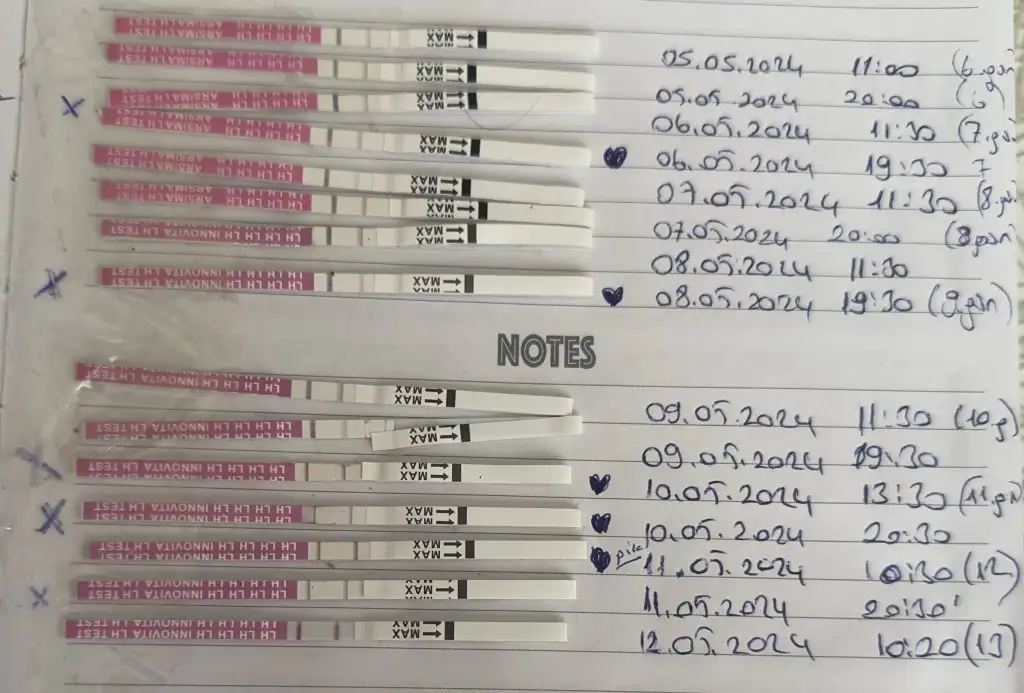 LH LH LH LH LH ARSIMA LH TEST MAX 05.05.2024 11:00 (6.gün
LH LH LH LH LH ARSIMA LH TEST MAX 05.05.2024 20:00 (6)
LH LH LH LH LH ARSIMA LH TEST MAX 06.05.2024 11:30 (7.gün
LH LH LH LH LH ARSIMA LH TEST MAX 06.05.2024 19:30 7
LH LH LH LH LH ARSIMA LH TEST MAX 07.05.2024 11:30 (8.gün
LH LH LH LH LH ARSIMA LH TEST MAX 07.05.2024 20:00 (8gün)
LH LH LH LH LH INNOVITA LH TEST MAX 08.05.2024 11:30
LH LH LH LH LH INNOVITA LH TEST MAX 08.05.2024 19:30 (9.gün)
NOTES
LH LH LH LH LH INNOVITA LH TEST MAX 09.05.2024 11:30 (10.g)
LH LH LH LH LH INNOVITA LH TEST MAX 09.05.2024 19:30
LH LH LH LH LH INNOVITA LH TEST MAX 10.05.2024 13:30 (11.gün
LH LH LH LH LH INNOVITA LH TEST MAX 10.05.2024 20:30
LH LH LH LH LH INNOVITA LH TEST MAX pik 11.05.2024 10:30 (12)
LH LH LH LH LH INNOVITA LH TEST MAX 11.05.2024 20:30
LH LH LH LH LH INNOVITA LH TEST MAX 12.05.2024 10:20 (13)